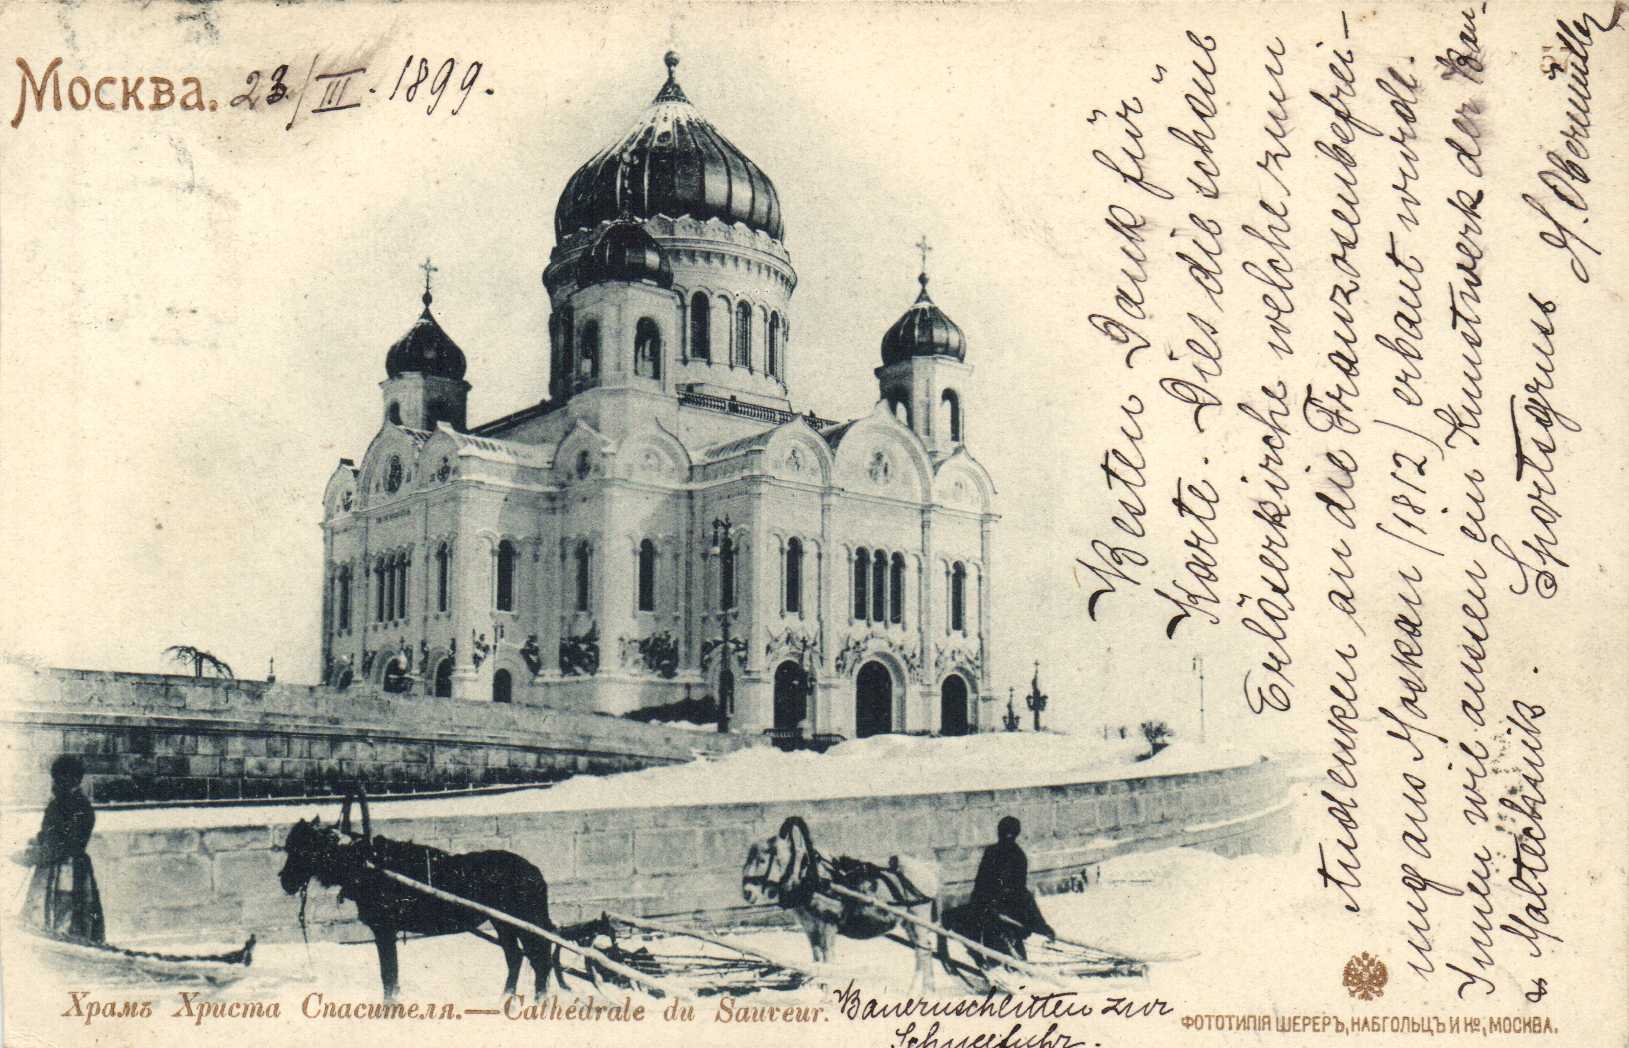 Москва. 23./III. 1899.
Besten Dank für
Karte. Dies die schöne
Erlöserkirche welche zum
Andenken an die Franzosenbefrei-
ung aus Moskau (1812) erbaut wurde.
Innen wie aussen ein Kunstwerk der Bau-
& Maltechnik. Sportsgruss
Obermüller
Храмъ Христа Спасителя.—Cathédrale du Sauveur.
Bauernschlitten zur
Schneefuhr.
ФОТОТИПІЯ ШЕРЕРЪ, НАБГОЛЬЦЪ И Ко, МОСКВА.